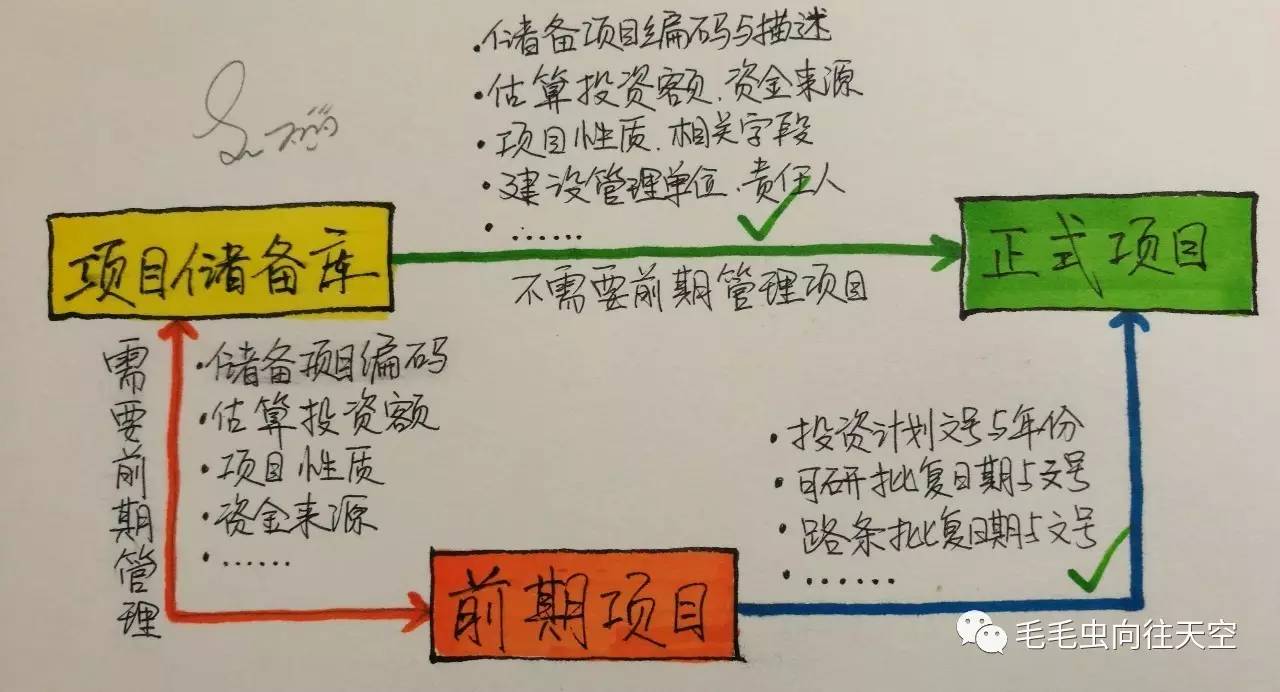 ·储备项目编码与描述
·估算投资额、资金来源
·项目性质、相关字段
·建设管理单位、责任人
·……
项目储备库
正式项目
不需要前期管理项目
需要前期管理
·储备项目编码
·估算投资额
·项目性质
·资金来源
·……
·投资计划文号与年份
·可研批复日期与文号
·路条批复日期与文号
·……
前期项目
毛毛虫向往天空